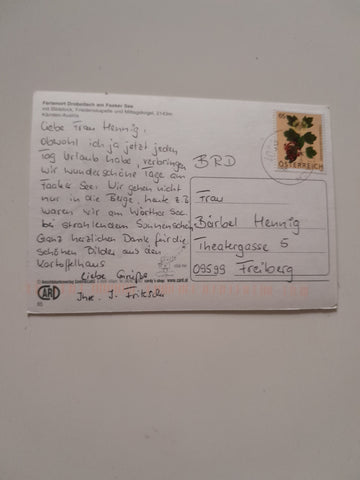 Ferienort Drobollach am Faaker See
mit Bildstock, Friedenskapelle und Mittagskogel, 2143m
Kärnten-Austria
Liebe Frau Hennig,
obwohl ich ja jetzt jeden
Tag Urlaub habe, verbringen
wir wunderschöne Tage am
Faaker See. Wir gehen nicht
nur in die Berge, heute z.B.
waren wir am Wörther See
bei strahlendem Sonnenschein
Ganz herzlichen Dank für die
schönen Bilder aus dem
Kartoffelhaus
Liebe Grüße
Ihre J. Fritsch
ÖSTERREICH
BRD
Frau
Bärbel Hennig
Theatergasse 5
09599 Freiberg
CARD